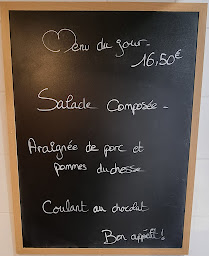 Menu du jour -
16,50€
Salade Composée -
Araignée de porc et
pommes duchesse
Coulant au chocolat
Bon appétit !